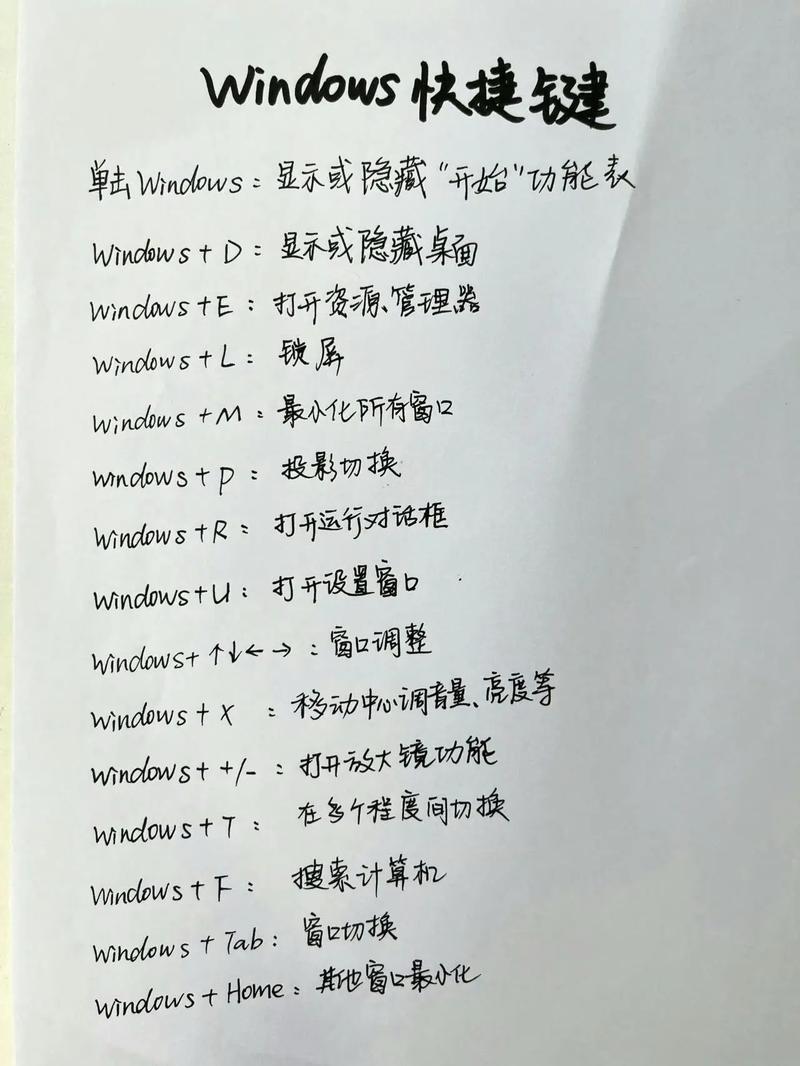 Windows 快捷键
单击Windows：显示或隐藏"开始"功能表
Windows + D：显示或隐藏桌面
Windows+E：打开资源、管理器
Windows+L：锁屏
Windows +M：最小化所有窗口
Windows+P：投影切换
Windows+R：打开运行对话框
Windows+U：打开设置窗口
Windows+ ↑↓← →：窗口调整
Windows+X：移动中心调音量、亮度等
Windows+ +/-：打开放大镜功能
Windows+T：在多个程度间切换
Windows+F：搜索计算机
Windows + Tab：窗口切换
Windows+Home：其他窗口最小化